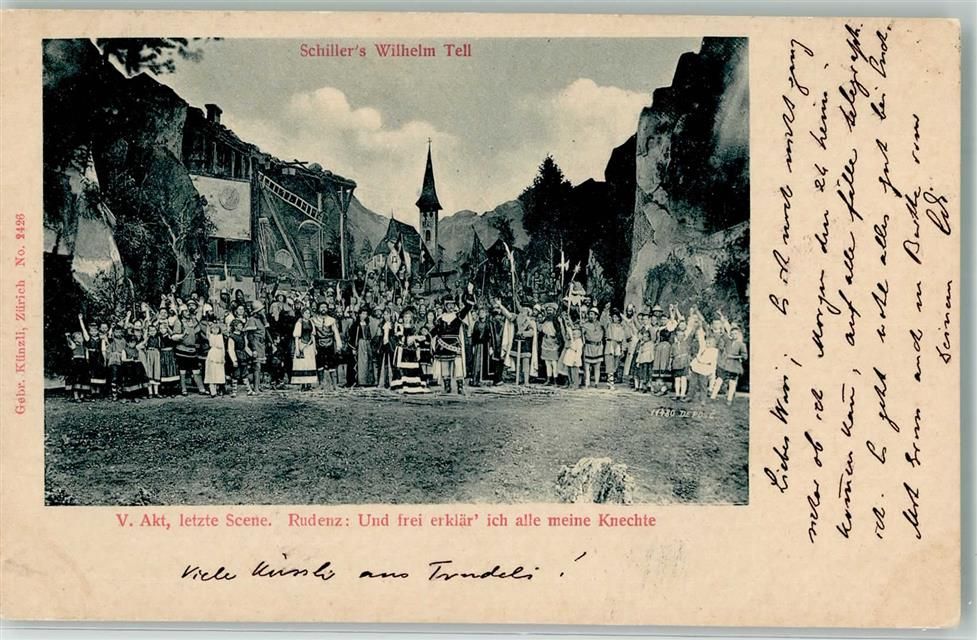 Schiller's Wilhelm Tell
Gebr. Künzli, Zürich No. 2426
11480 DEPOSÉ
V. Akt, letzte Scene. Rudenz: Und frei erklär' ich alle meine Knechte
Viele Küssli aus Trudeli !
Liebes ! Es ist noch nicht ganz
sicher ob ich Morgen den 24 heim
kommen kann, auf alle fälle telegraph.
ich. Es geht alles gut bei
und in vom